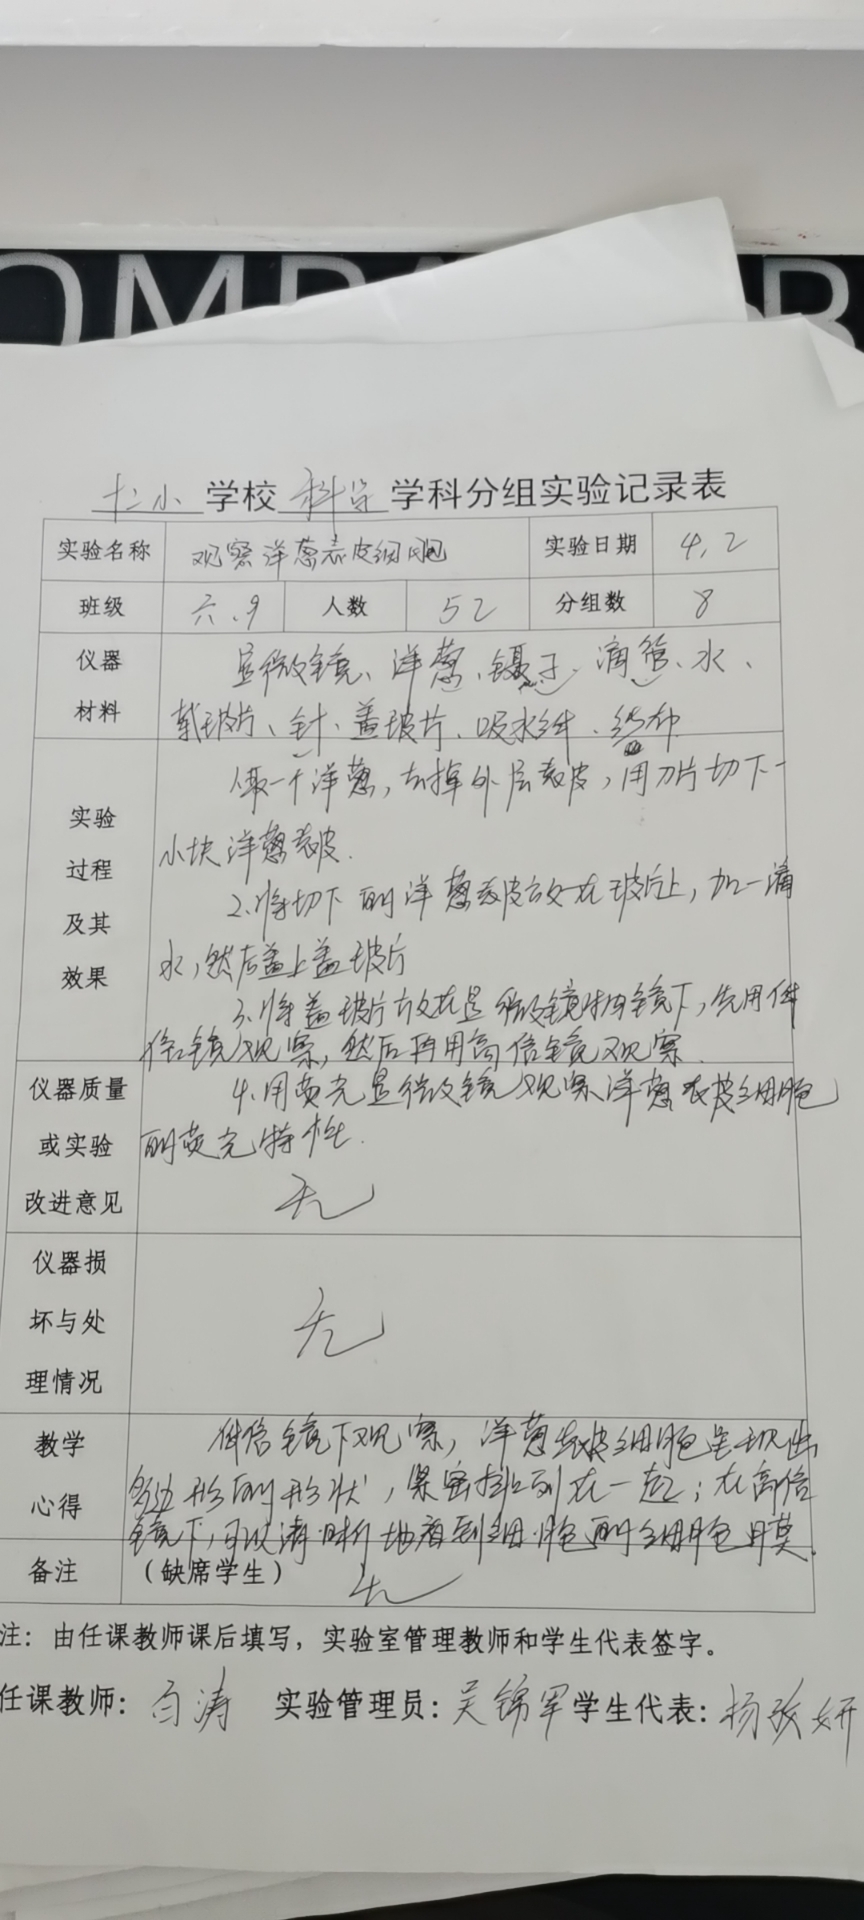 十二小学校科学学科分组实验记录表
实验名称 观察洋葱表皮细胞 实验日期 4.2
班级 六.9 人数 52 分组数 8
仪器 显微镜、洋葱、镊子、滴管、水、
材料 载玻片、针、盖玻片、吸水纸、纱布
1.取一个洋葱,去掉外层表皮,用刀片切下一
实验
小块洋葱表皮.
过程
2.将切下的洋葱表皮放在玻片上,加一滴
及其
水,然后盖上盖玻片
效果
3.将盖玻片放在显微镜物镜下,先用低
倍镜观察,然后再用高倍镜观察.
仪器质量 4.用荧光显微镜观察洋葱表皮细胞
或实验 的荧光特性.
改进意见 无
仪器损
坏与处 无
理情况
教学 低倍镜下观察,洋葱表皮细胞呈现出
心得 多边形的形状,紧密排列在一起;在高倍
镜下,可以清晰地看到细胞的细胞膜.
备注 (缺席学生) 无
注:由任课教师课后填写,实验室管理教师和学生代表签字。
任课教师:白涛 实验管理员:吴锦军 学生代表:杨妍